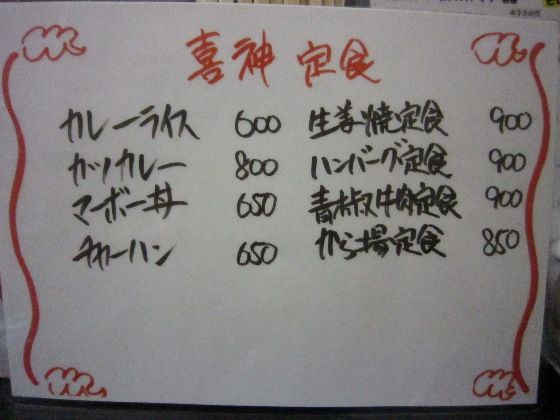 喜神 定食
カレーライス 600 生姜焼定食 900
カツカレー 800 ハンバーグ定食 900
マーボー丼 650 青椒牛肉定食 900
チャーハン 650 から揚定食 850